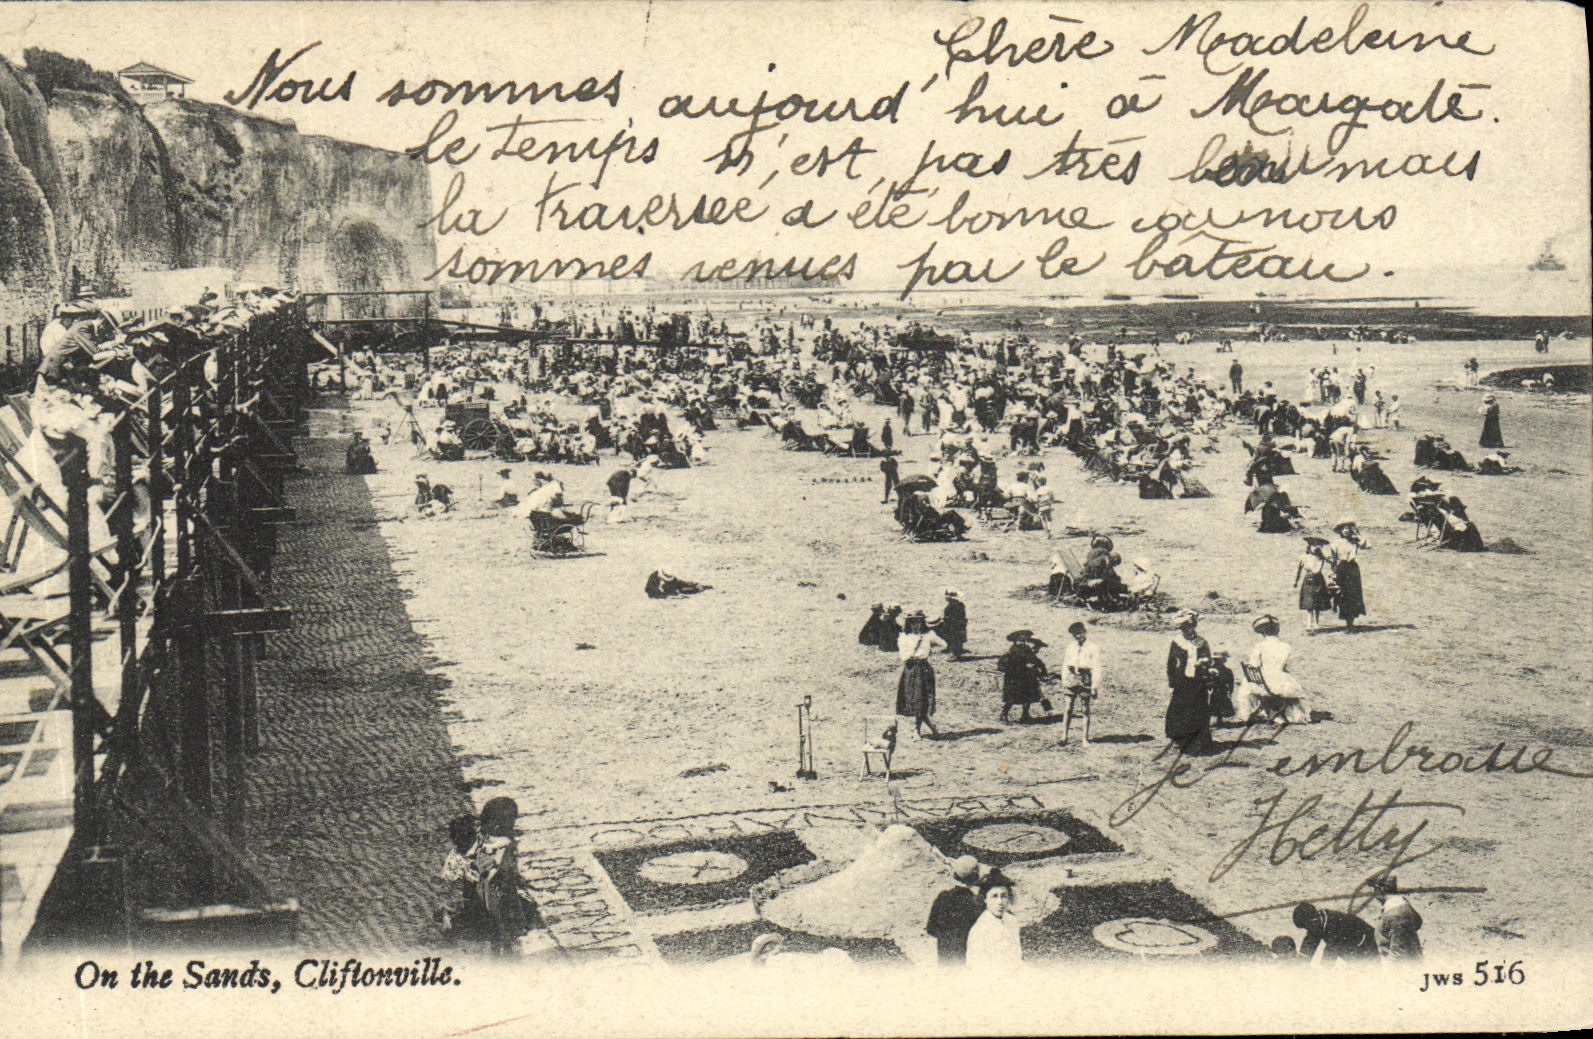 Chère Madeleine
Nous sommes aujourd'hui à Margate.
le temps n'est pas très beau mais
la traversée a été bonne car nous
sommes venues par le bâteau.
Je t'embrasse
Hetty
On the Sands, Cliftonville.
JWS 516